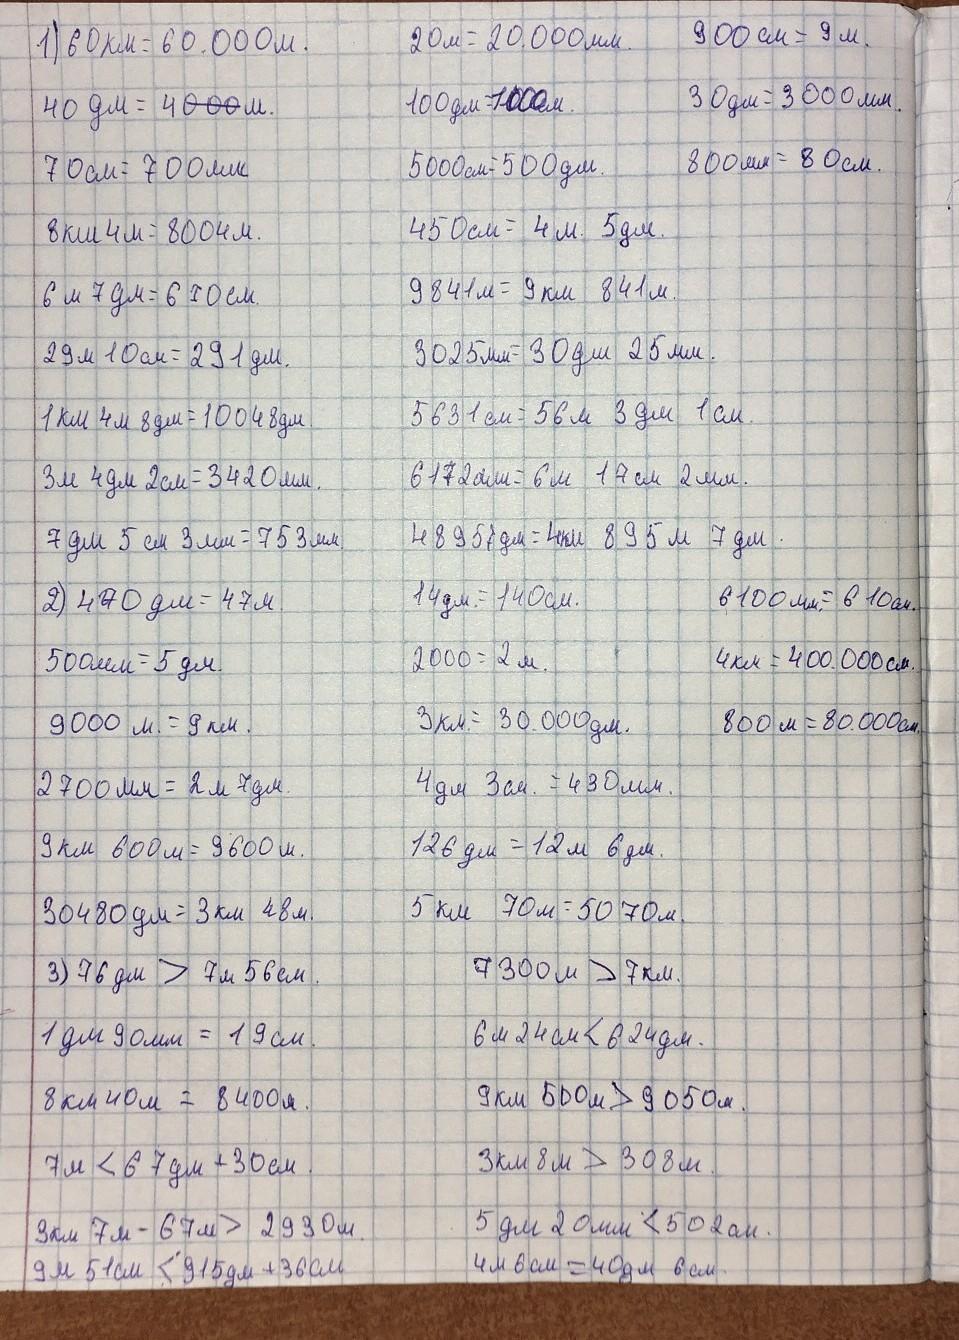 1) 60км = 60.000м. 20м = 20.000мм. 900см = 9м.
40дм = 4м. 100дм = 1000см. 30дм = 3000мм.
70см = 700мм 5000см = 500дм. 800мм = 80см.
8км 4м = 8004м. 450см = 4м. 5дм.
6м 7дм = 670см. 9841м = 9км 841м.
29м 10см = 291дм. 3025мм = 30дм 25мм.
1км 4м 8дм = 10048дм 5631см = 56м 3дм 1см.
3м 4дм 2см = 3420мм. 6172мм = 6м 17см 2мм.
7дм 5см 3мм = 753мм 48957дм = 4км 895м 7дм.
2) 470дм = 47м. 14дм. = 140см. 6100мм. = 610см.
500мм = 5дм. 2000 = 2м. 4км = 400.000см.
9000м. = 9км. 3км. = 30.000дм. 800м = 80.000см.
2700мм = 2м 7дм. 4дм 3см. = 430мм.
9км 600м = 9600м. 126дм = 12м 6дм.
30480дм = 3км 48м. 5км 70м = 5070м.
3) 76дм > 7м 56см. 7300м > 7км.
1дм 90мм = 19см. 6м 24см < 624дм.
8км 40м = 8400м. 9км 500м > 9050м.
7м < 67дм + 30см. 3км 8м > 308м.
3км 7м - 67м > 2930м. 5дм 20мм < 502см.
9м 51см < 915дм + 36см 4м 6см = 40дм 6см.